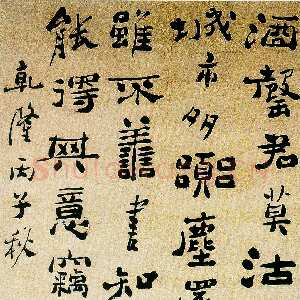 酒罄君莫沽
城市多囂塵
雖不善書知
能得其意竊
乾隆丙子秋